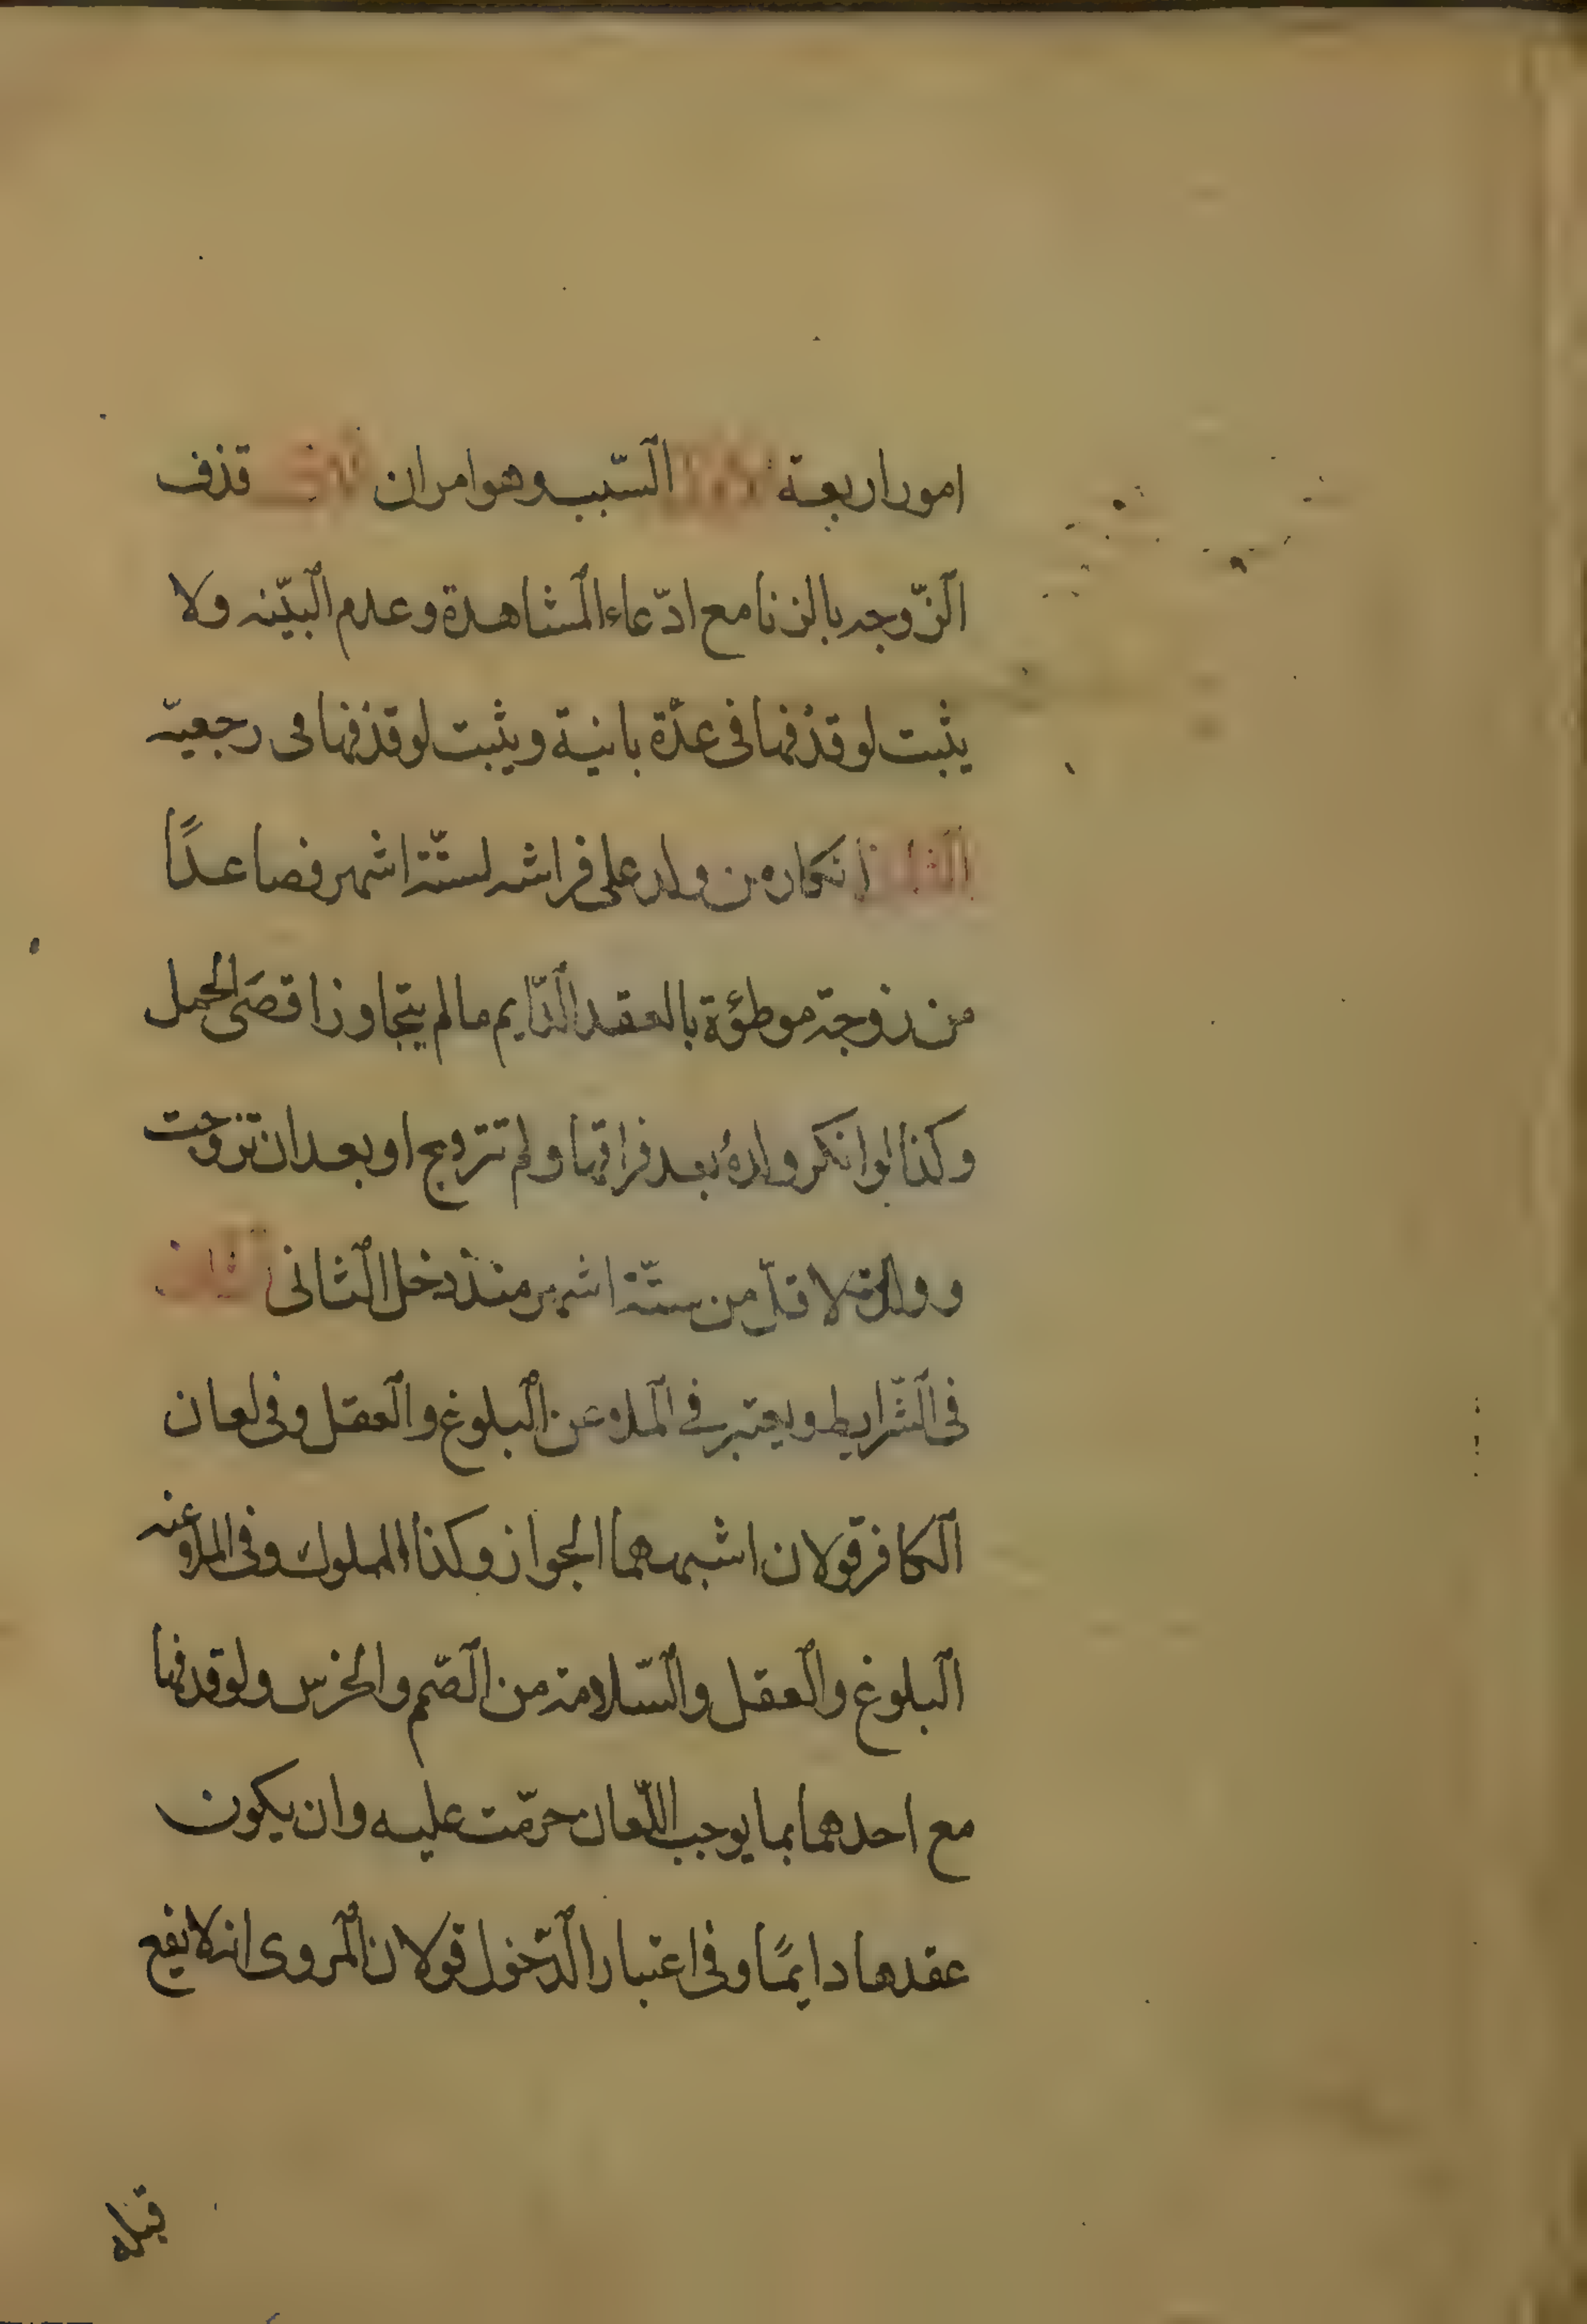 امور اربعة الاول السّبب وهو امران الاول قذف
الزّوجه بالزنا مع ادّعاء المشاهدة وعدم البيّنه ولا
يثبت لو قذفها فى عدّة باينة ويثبت لو قذفها فى رجعيّه
الثانى انكار من ولد على فراشه لستّة اشهر فصاعدًا
من زوجة موطؤة بالعقد الدّايم ما لم يتجاوز اقصَى الحمل
وكذا لو انكر ولدهُ بعد فراقها ولم تتزوج او بعد ان تزوجت
وولدته لاقلّ من ستّة اشهر منذ دخل الثانى الثانى
فى الشّرايط ويعتبر فى الملاعن البلوغ والعقل وفى لعان
الكافر قولان اشبههما الجواز وكذا المملوك وفى الملاعنه
البلوغ والعقل والسّلامة من الصّمم والخرس ولو قذفها
مع احدهما بما يوجب اللّعان حرمّت عليه وان يكون
عقدها دايمًا وفى اعتبار الدّخول قولان المروى انه لا يقع
قبله